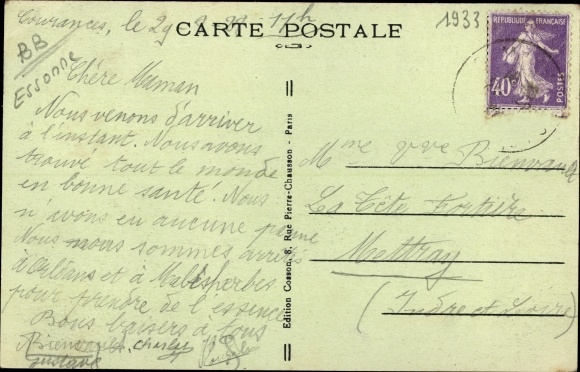 Courances, le 29
CARTE POSTALE
1933
BB
Essonne
RÉPUBLIQUE FRANÇAISE
40c
POSTES
Chère Maman
Nous venons d'arriver
à l'instant. Nous avons
trouvé tout le monde
en bonne santé. Nous
n'avons eu aucune panne
Nous nous sommes arrêtés
à Orléans et à Malesherbes
pour prendre de l'essence
Bons baisers à tous
Charles
Gustave
Edition Cosson, 8, Rue Pierre-Chausson - Paris
Mme Vve Bienvault
La Tête Fortière
Mettray
(Indre et Loire)